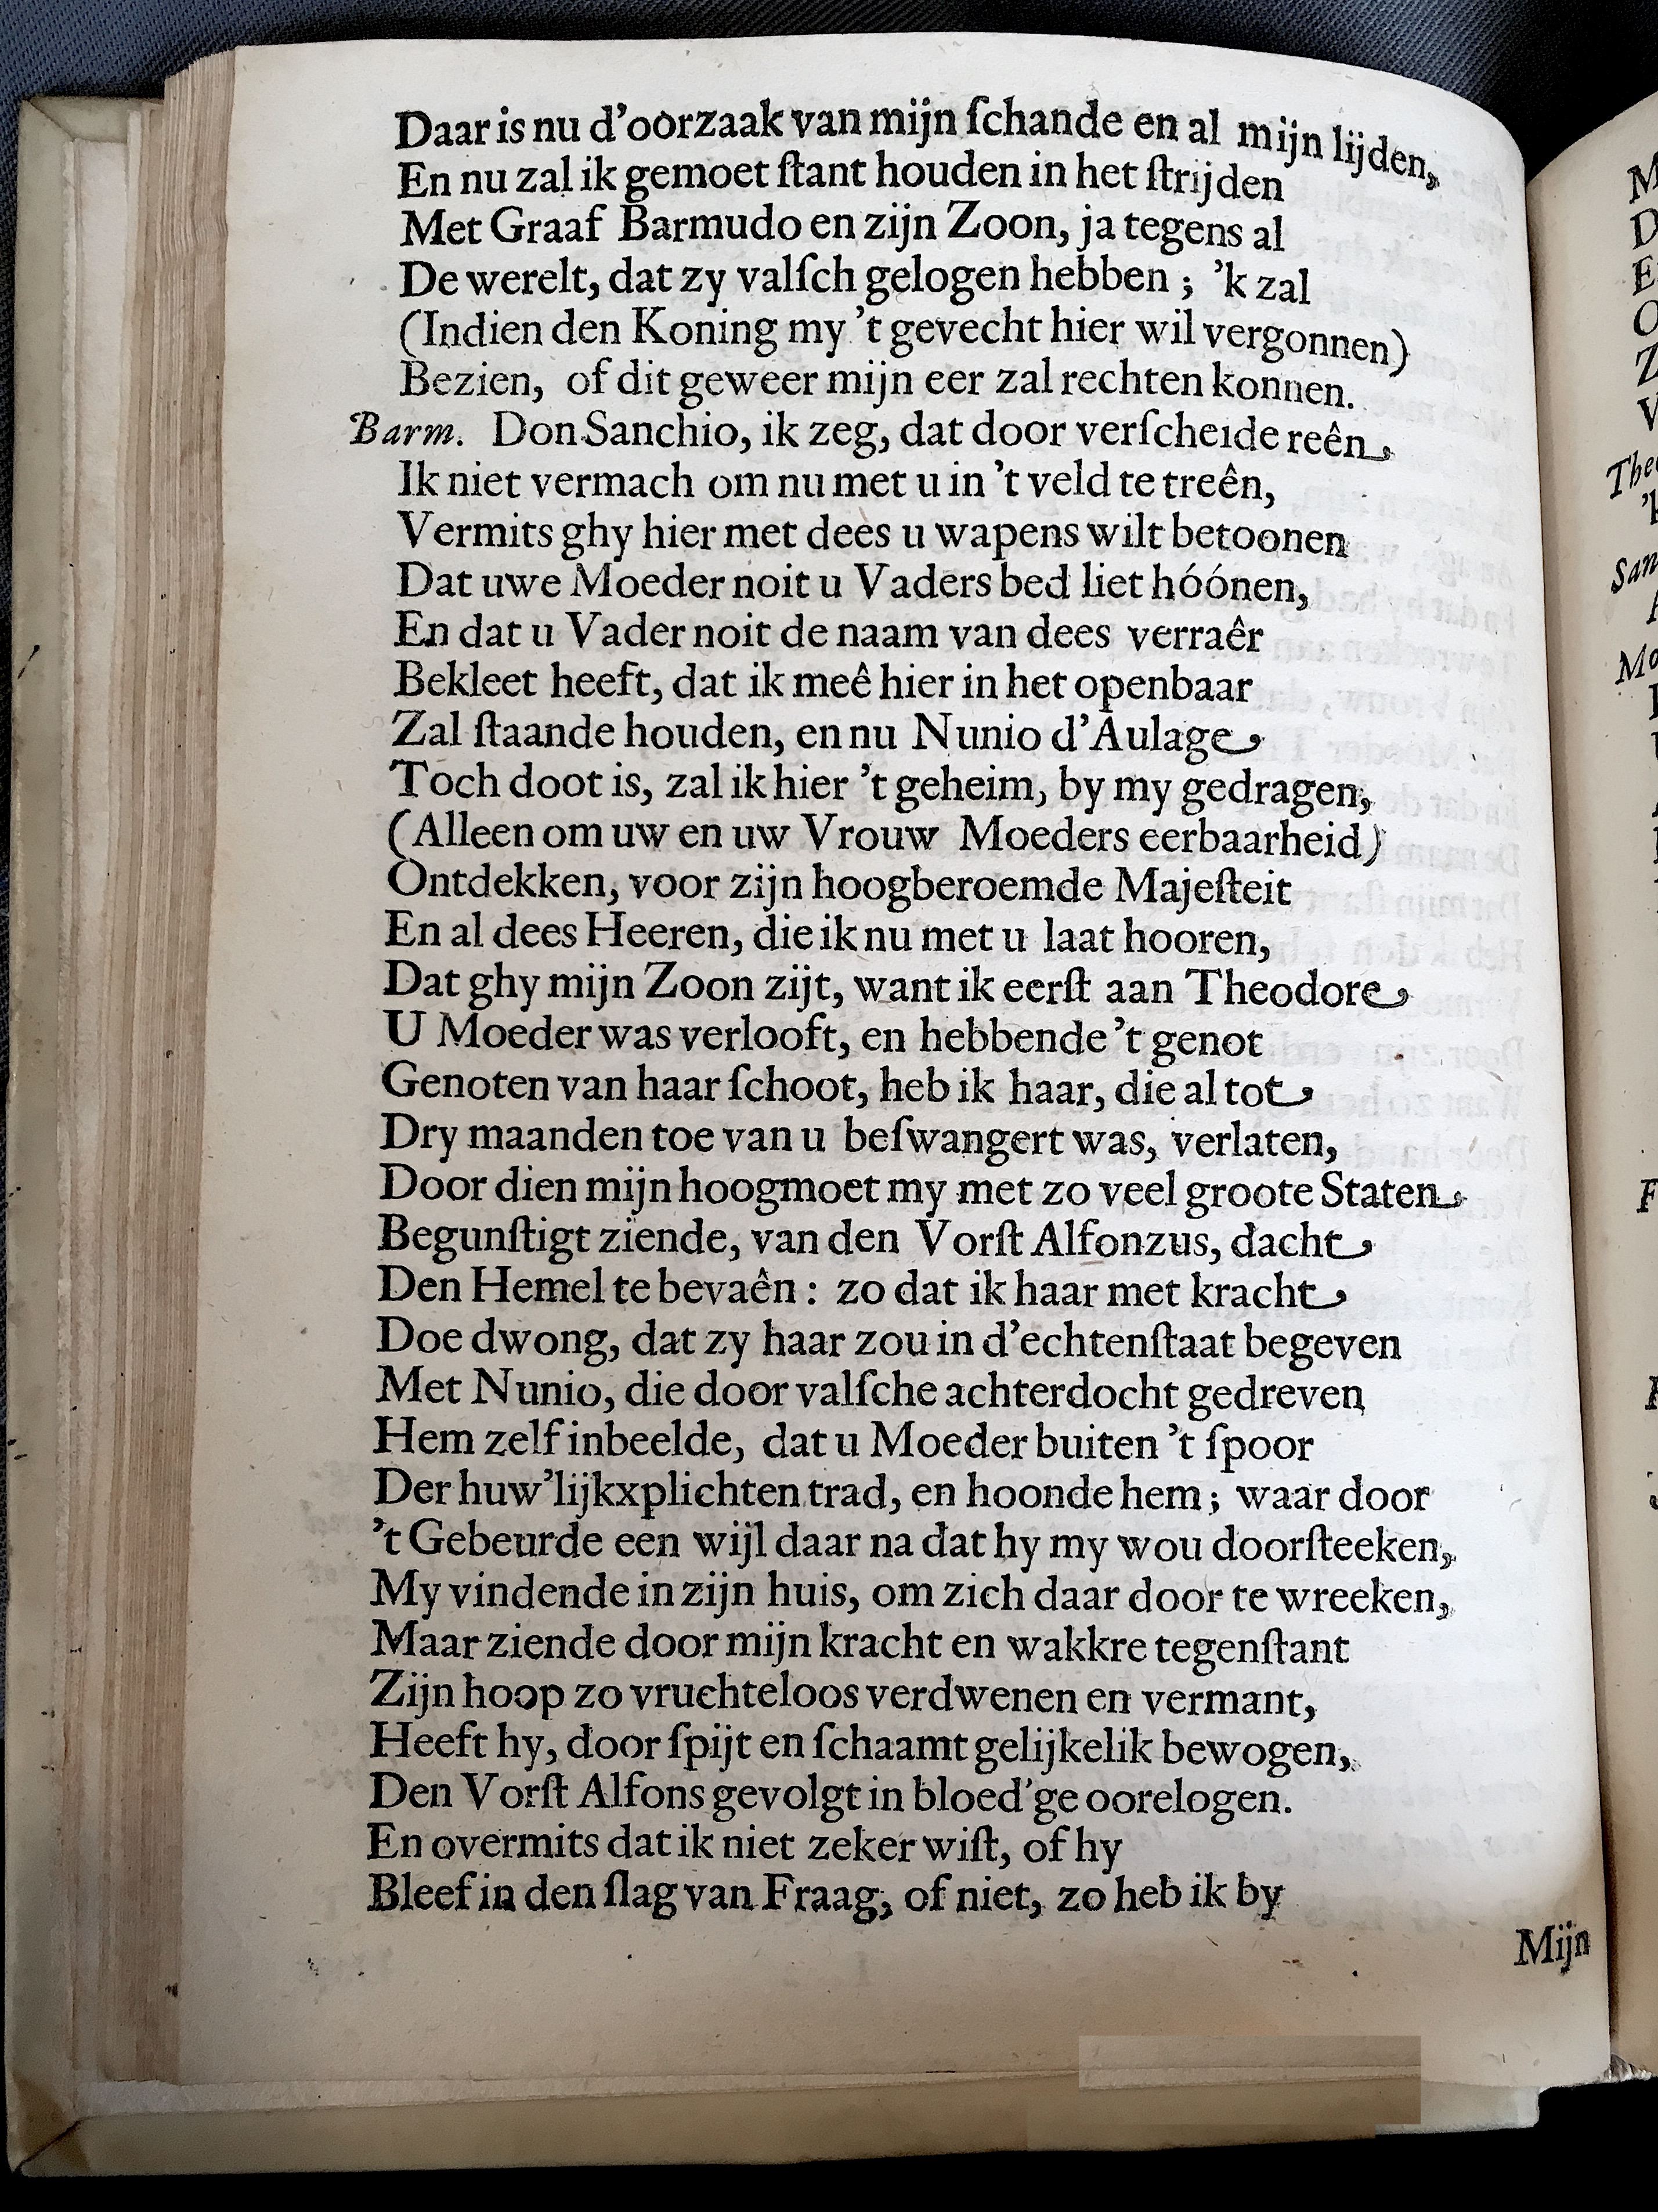 Daar is nu d'oorzaak van mijn ſchande en al mijn lijden,
En nu zal ik gemoet ſtant houden in het ſtrijden
Met Graaf Barmudo en zijn Zoon, ja tegens al
De werelt, dat zy valſch gelogen hebben; 'k zal
(Indien den Koning my 't gevecht hier wil vergonnen)
Bezien, of dit geweer mijn eer zal rechten konnen.
Barm. Don Sanchio, ik zeg, dat door verſcheide reên
Ik niet vermach om nu met u in 't veld te treên,
Vermits ghy hier met dees u wapens wilt betoonen
Dat uwe Moeder noit u Vaders bed liet hóónen,
En dat u Vader noit de naam van dees verraêr
Bekleet heeft, dat ik meê hier in het openbaar
Zal ſtaande houden, en nu Nunio d'Aulage
Toch doot is, zal ik hier 't geheim, by my gedragen,
(Alleen om uw en uw Vrouw Moeders eerbaarheid)
Ontdekken, voor zijn hoogberoemde Majeſteit
En al dees Heeren, die ik nu met u laat hooren,
Dat ghy mijn Zoon zijt, want ik eerſt aan Theodore
U Moeder was verlooft, en hebbende 't genot
Genoten van haar ſchoot, heb ik haar, die al tot
Dry maanden toe van u beſwangert was, verlaten,
Door dien mijn hoogmoet my met zo veel groote Staten
Begunſtigt ziende, van den Vorſt Alfonzus, dacht
Den Hemel te bevaên: zo dat ik haar met kracht
Doe dwong, dat zy haar zou in d'echtenſtaat begeven
Met Nunio, die door valſche achterdocht gedreven
Hem zelf inbeelde, dat u Moeder buiten 't ſpoor
Der huw'lijkxplichten trad, en hoonde hem; waar door
't Gebeurde een wijl daar na dat hy my wou doorſteeken,
My vindende in zijn huis, om zich daar door te wreeken,
Maar ziende door mijn kracht en wakkre tegenſtant
Zijn hoop zo vruchteloos verdwenen en vermant,
Heeft hy, door ſpijt en ſchaamt gelijkelik bewogen,
Den Vorſt Alfons gevolgt in bloed'ge oorelogen.
En overmits dat ik niet zeker wiſt, of hy
Bleef in den ſlag van Fraag, of niet, zo heb ik by
Mijn